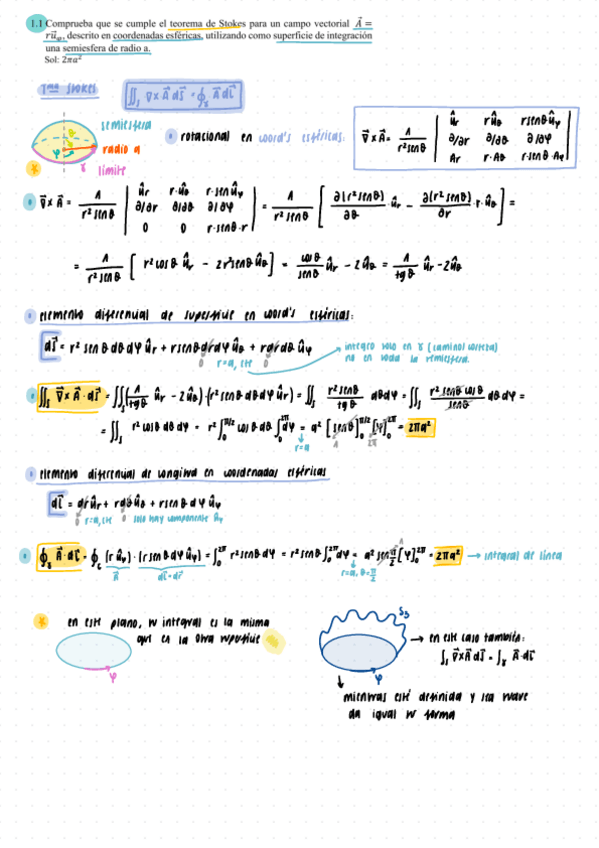 1.1 Comprueba que se cumple el teorema de Stokes para un campo vectorial A⃗ =
ru⃗φ, descrito en coordenadas esféricas, utilizando como superficie de integración
una semiesfera de radio a.
Sol: 2πa²
Tma Stokes
∬s ∇×A⃗ dS⃗ = ∮γ A⃗ dl⃗
semiesfera
radio a
φ γ límite
rotacional en coord's esféricas:
∇⃗×A⃗ = 1/(r² senθ) | ûr rûθ rsenθûφ |
| ∂/∂r ∂/∂θ ∂/∂φ |
| Ar r·Aθ r·senθ·Aφ |
∇⃗×A⃗ = 1/(r² senθ) | ûr r·ûθ r·senûφ ; ∂/∂r ∂/∂θ ∂/∂φ ; 0 0 r·senθ·r | = 1/(r² senθ) [ ∂(r²senθ)/∂θ · ûr - ∂(r²senθ)/∂r · r·ûθ ] =
= 1/(r² senθ) [ r² cosθ ûr - 2r²senθûθ ] = cosθ/senθ ûr - 2ûθ = 1/tgθ ûr - 2ûθ
elemento diferencial de superficie en coord's esféricas:
dS⃗ = r² senθ dθ dφ ûr + rsenθ dr dφ ûθ + r dr dθ ûφ
0 r=a, cte 0
integro solo en γ (camino/corteza)
no en toda la semiesfera.
∬s ∇⃗×A⃗·dS⃗ = ∬s (1/tgθ ûr - 2ûθ)·(r² senθ dθ dφ ûr) = ∬s r²senθ/tgθ dθdφ = ∬s r² senθ cosθ/senθ dθ dφ =
= ∬s r² cosθ dθ dφ = r² ∫₀^π/2 cosθ dθ ∫₀^2π dφ = a² [senθ]₀^π/2 [φ]₀^2π = 2πa²
r=a 1 2π
elemento diferencial de longitud en coordenadas esféricas
dl⃗ = dr ûr + r dθ ûθ + r senθ dφ ûφ
0 r=a, cte 0 solo hay componente ûφ
∮γ A⃗·dl⃗ = ∮γ (r ûφ)·(r senθ dφ ûφ) = ∫₀^2π r² senθ dφ = r² senθ ∫₀^2π dφ = a² sen π/2 [φ]₀^2π = 2πa² → integral de línea
A⃗ dl⃗=dr⃗ r=a, θ=π/2 1
en este plano, la integral es la misma
que en la otra superficie
φ
S3
→ en este caso también:
∫s ∇⃗×A⃗ dS⃗ = ∫γ A⃗·dl⃗
φ
mientras esté definida y sea suave
da igual la forma